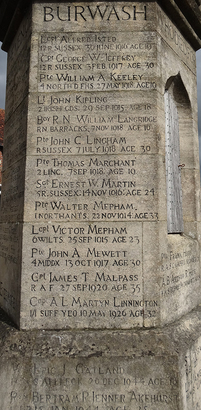 BURWASH
LCPL ALFRED ISTED
12 R SUSSEX 30 JUNE 1916
CPL GEORGE W JEFFERY
12 R SUSSEX 3 FEB 1917 AGE 30
PTE WILLIAM A KEELEY
4 NORTHD FUS 27 MAY 1918 AGE
LT JOHN KIPLING
SEP 1915 AGE 18
BOY R N WILLIAM LANGRIDGE
RN BARRACKS, NOV 1918 AGE
PTE JOHN C LINGHAM
R SUSSEX 7 JULY 1918 AGE 30
PTE THOMAS MARCHANT
2 LINC. 7 SEP 1918. AGE
SGT ERNEST W MARTIN
R SUSSEX. 14 NOV 1916 AGE 24
PTE WALTER MEPHAM,
1 NORTHANTS. 22 NOV 1914. AGE 33
LCPL VICTOR MEPHAM
WILTS. 25 SEP 1915 AGE 23
PTE JOHN A MEWETT
4 MIDDX 13 OCT 1917 AGE 30
CPL JAMES T MALPASS
R A F. 27 SEP 1920. AGE 35
CPL A L MARTYN LINNINGTON
SUFF YEO. 10 MAY 1926 AGE 32
ERIC J GATLAND
20 DEC 1944 AGE
BERTRAM P JENNER AKEHURST